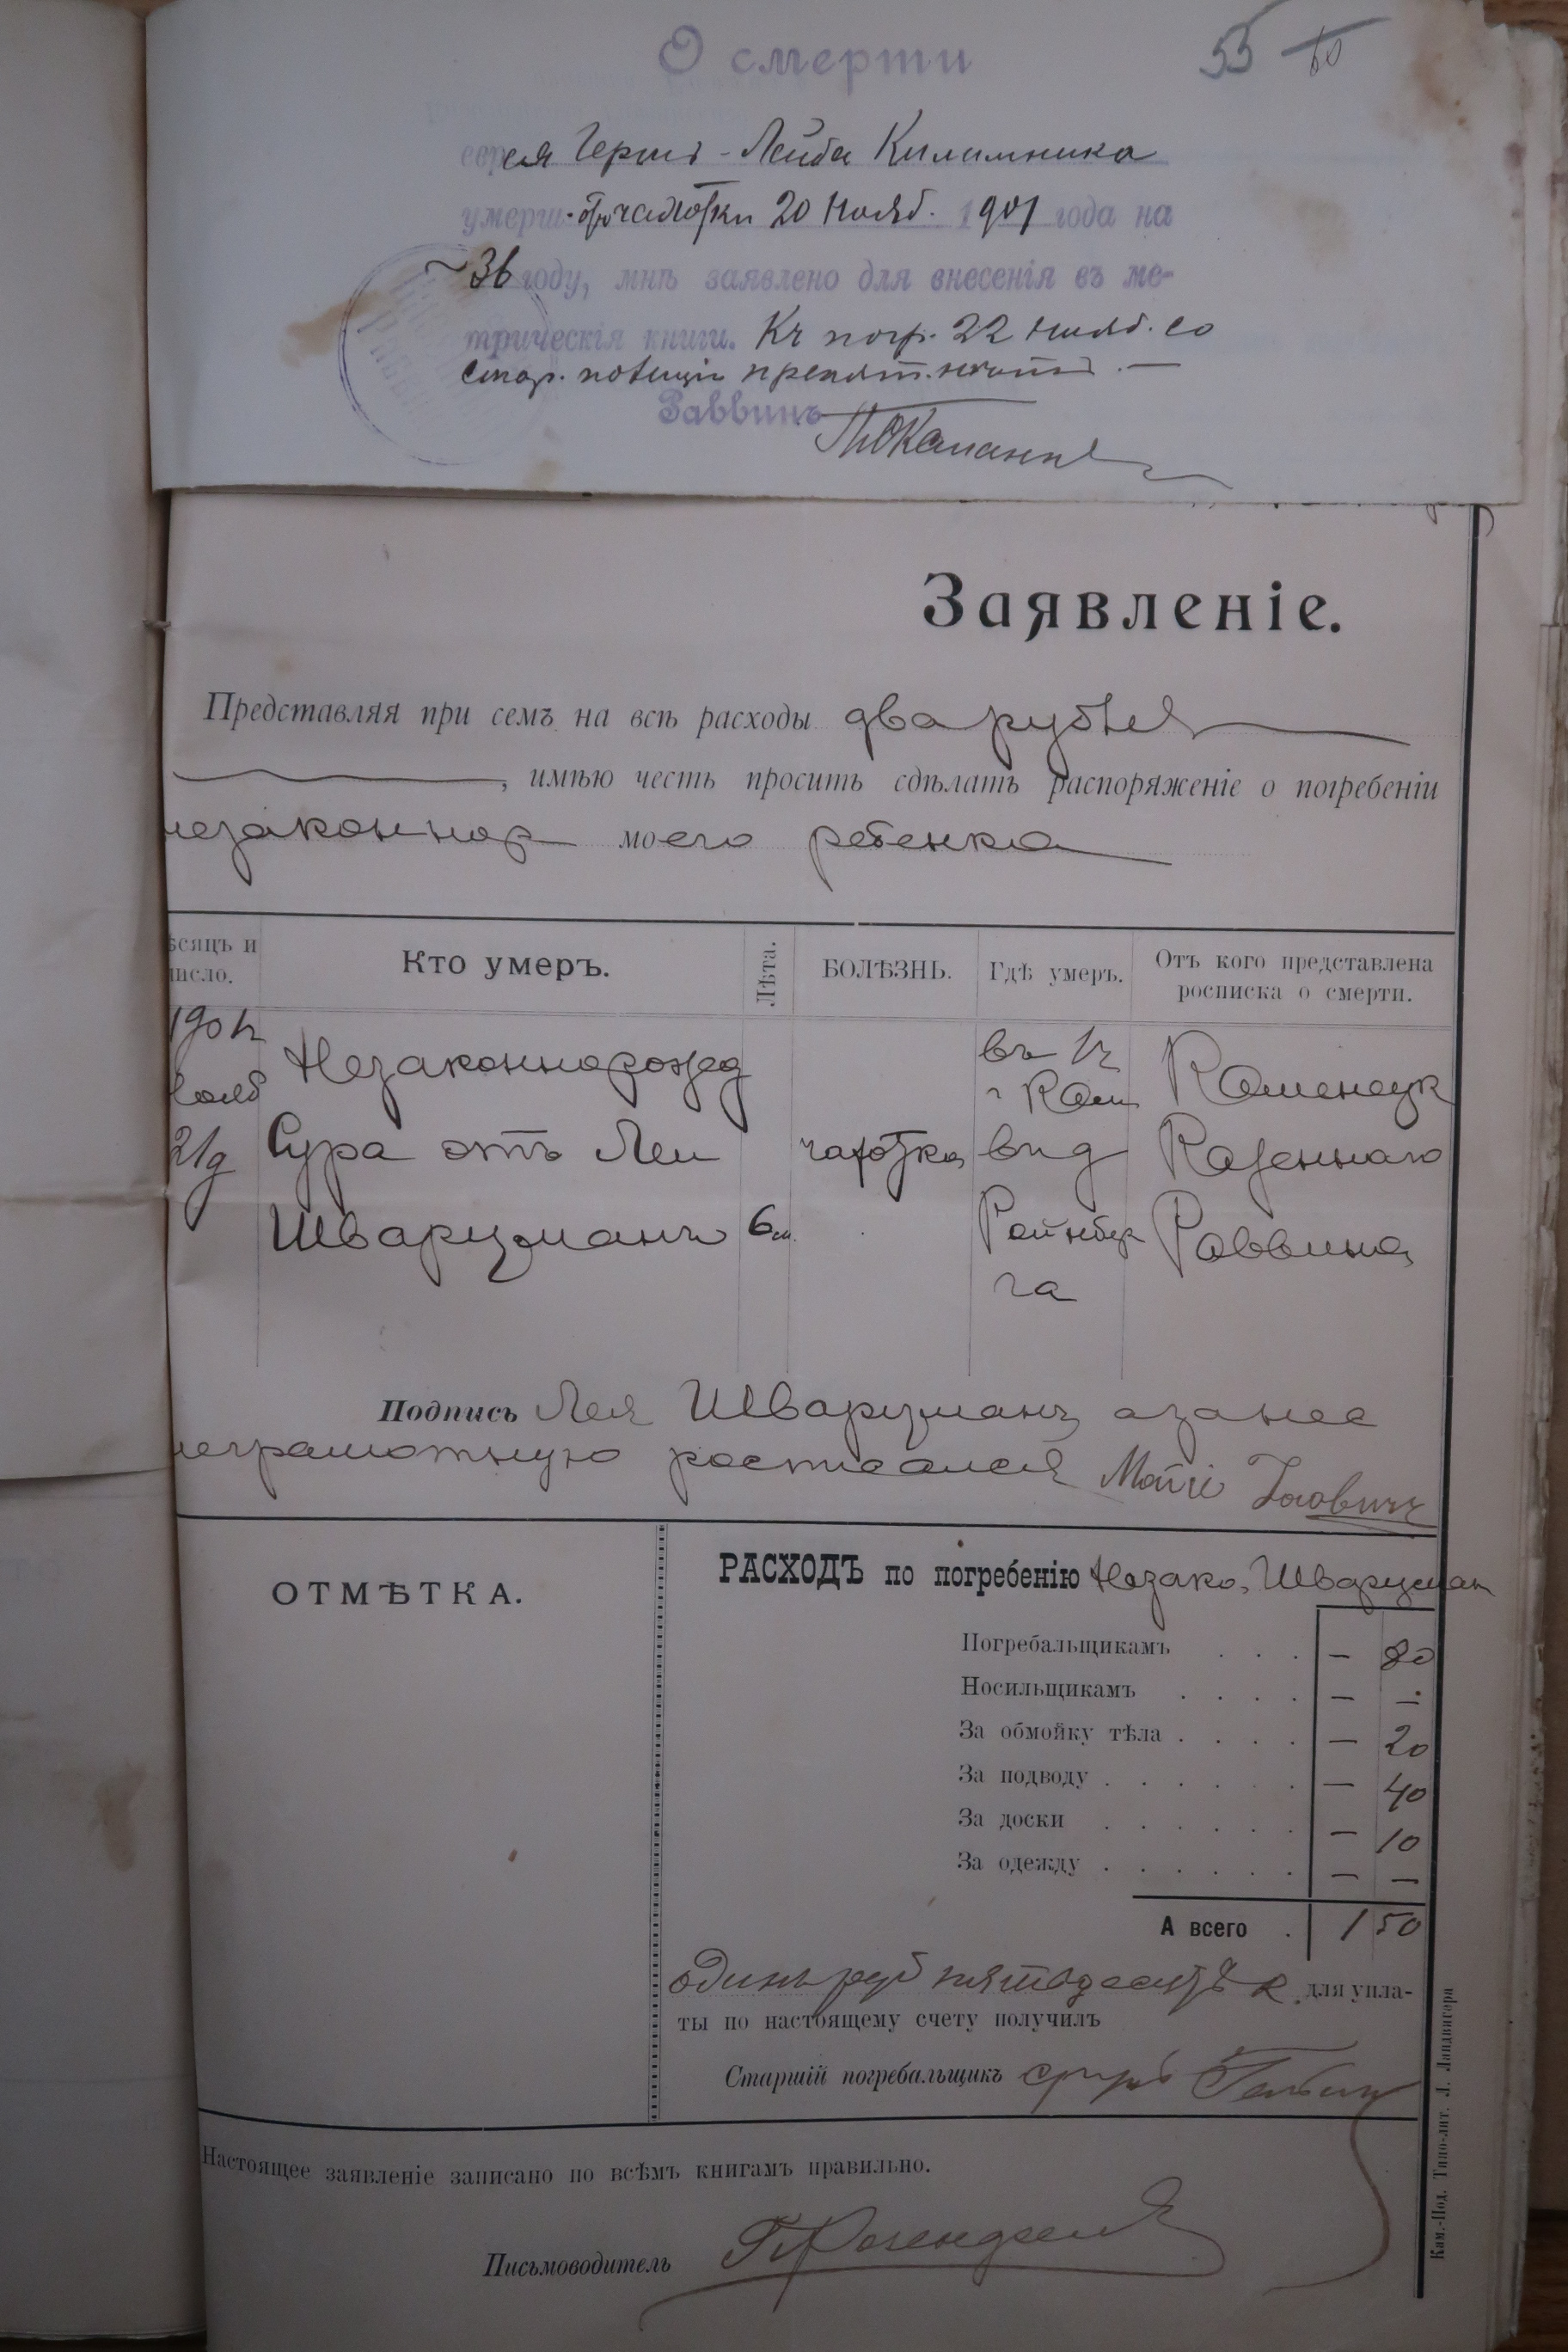 55 60
О смерти
еврея Герша-Лейба Килимника
умерш. отъ чахотки 20 Нояб. 1901 года на
36 году, мнѣ заявлено для внесенія въ ме-
трическія книги. Къ погр. 22 Нояб. со
стор. полиціи препят. нѣтъ. —
Раввинъ
Заявленіе.
Представляя при семъ на всѣ расходы два рубля
, имѣю честь просить сдѣлать распоряженіе о погребеніи
незаконнор моего ребенка
ѣсяцъ и число. Кто умеръ. Лѣта. БОЛѢЗНЬ. Гдѣ умеръ. Отъ кого представлена росписка о смерти.
1901 Незаконнорожд въ г Кам Каменецк
Нояб 21д Сура отъ Леи чахотка в д Казеннаго
Шварцманъ 6 м. Райнбер Раввина
га
Подпись Лея Шварцманъ а за нее
неграмотную росписался
ОТМѢТКА.
РАСХОДЪ по погребенію Незако. Шварцман
Погребальщикамъ . . . — 80
Носильщикамъ . . . . — —
За обмойку тѣла . . . . — 20
За подводу . . . . . . — 40
За доски . . . . . . — 10
За одежду . . . . . . — —
А всего . 1 50
одинъ руб пятьдесятъ к. для упла-
ты по настоящему счету получилъ
Старшій погребальщикъ
Настоящее заявленіе записано по всѣмъ книгамъ правильно.
Письмоводитель
Кам.-Под. Типо-лит. Л. Ландвигера